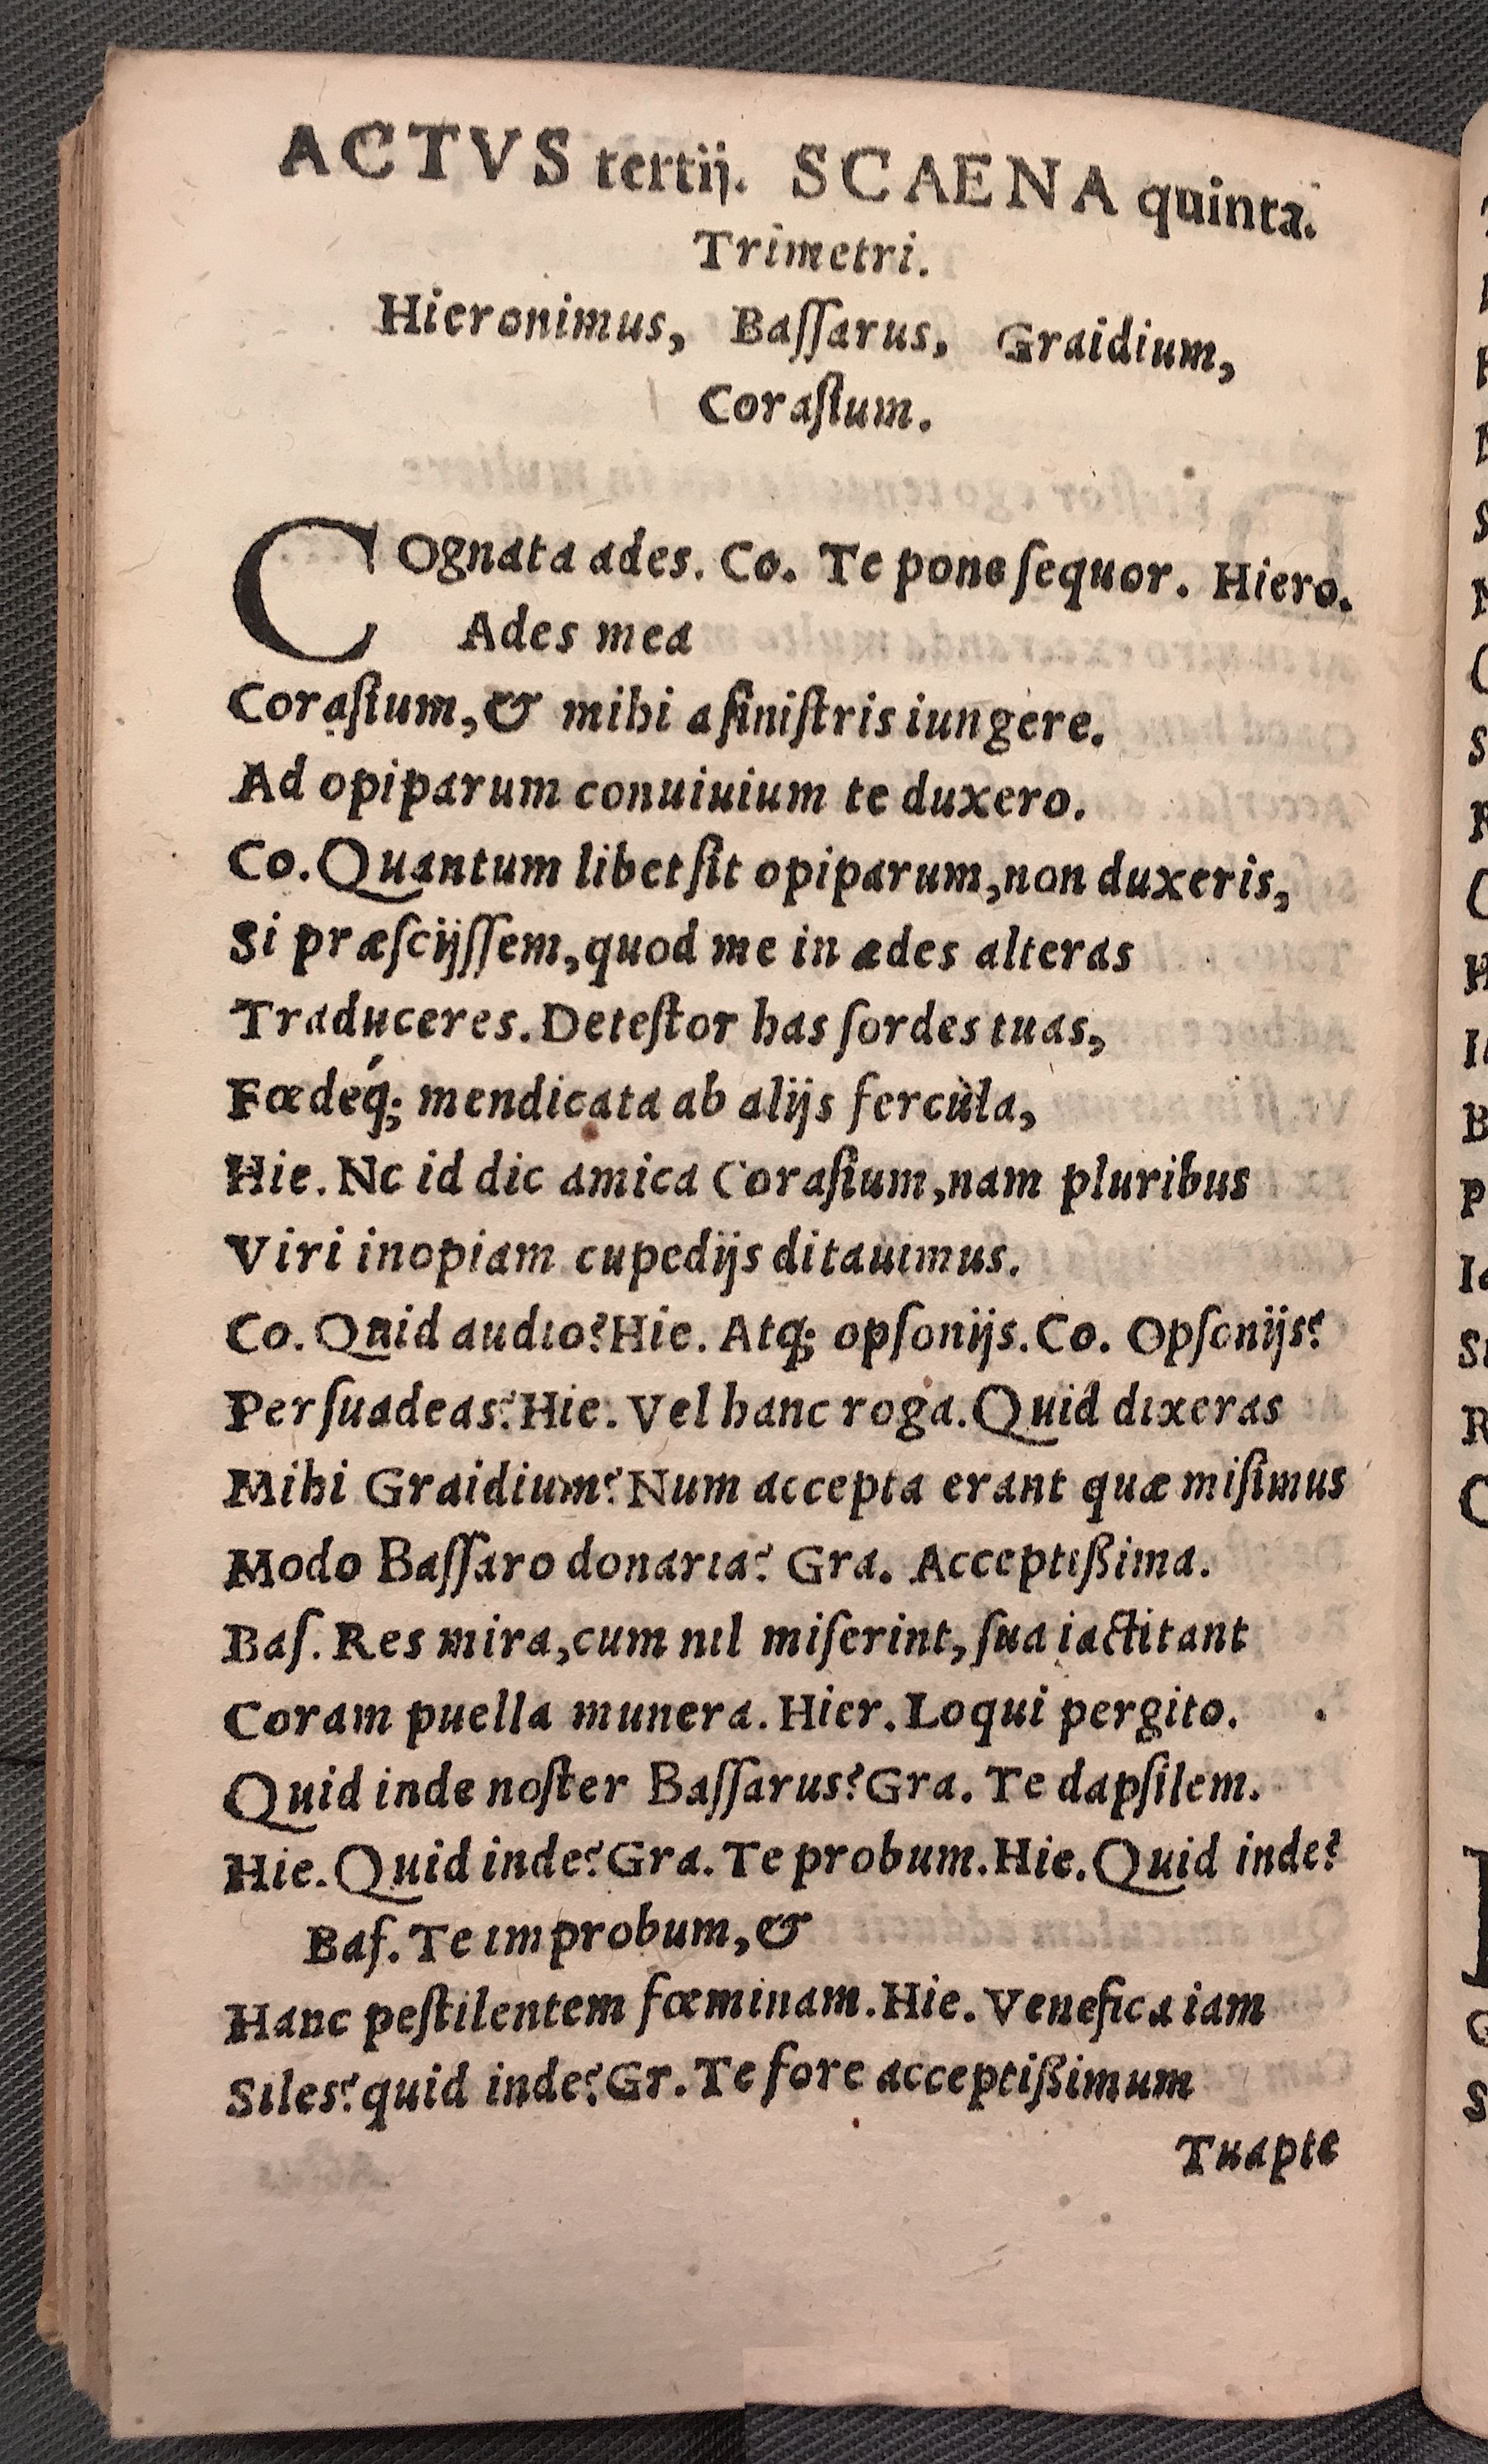 ACTVS tertij. SCAENA quinta.
Trimetri.
Hieronimus, Baſſarus, Graidium,
Coraſium.
COgnata ades. Co. Te pone ſequor. Hiero.
Ades mea
Coraſium, & mihi a ſiniſtris iungere.
Ad opiparum conuiuium te duxero.
Co. Quantum libet ſit opiparum, non duxeris,
Si præſcijſſem, quod me in ædes alteras
Traduceres. Deteſtor has ſordes tuas,
Fœdeq́; mendicata ab alijs fercùla,
Hie. Nc id dic amica Coraſium, nam pluribus
Viri inopiam cupedijs ditauimus.
Co. Quid audio? Hie. Atq; opſonijs. Co. Opſonijs?
Perſuadeas? Hie. Vel hanc roga. Quid dixeras
Mihi Graidium? Num accepta erant quæ miſimus
Modo Baſſaro donaria? Gra. Acceptißima.
Baſ. Res mira, cum nil miſerint, ſua iactitant
Coram puella munera. Hier. Loqui pergito.
Quid inde noſter Baſſarus? Gra. Te dapſilem.
Hie. Quid inde? Gra. Te probum. Hie. Quid inde?
Baſ. Te improbum, &
Hanc peſtilentem fœminam. Hie. Venefica iam
Siles? quid inde? Gr. Te fore acceptißimum
Tuapte